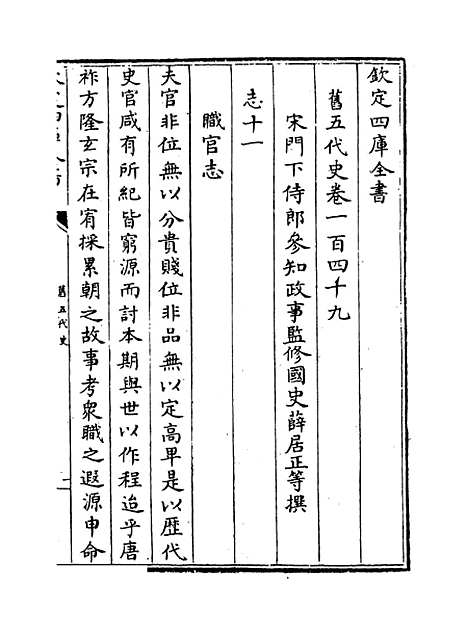 欽定四庫全書
舊五代史卷一百四十九
宋門下侍郎參知政事監修國史薛居正等撰
志十一
職官志
夫官非位無以分貴賤位非品無以定高卑是以歷代
史官咸有所紀皆窮源而討本期與世以作程迨乎唐
祚方隆玄宗在宥採累朝之故事考衆職之遐源申命
舊五代史
一